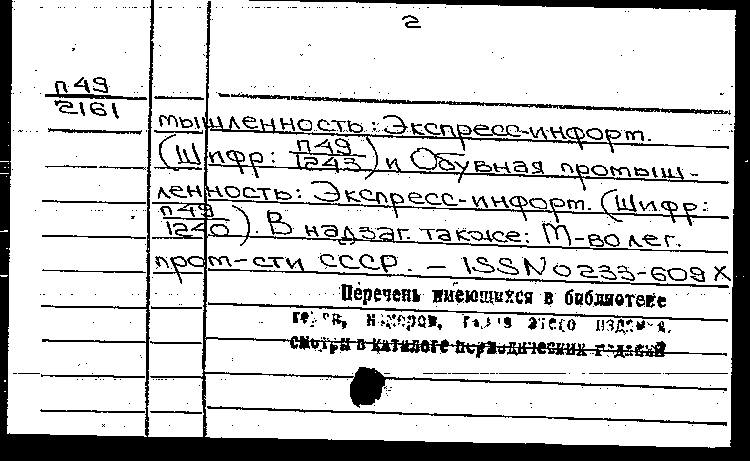 2
П49
2161
тышленность: Экспресс-инфорт.
(Шифр: П49
1243) и Обувная промыш-
ленность: Экспресс-инфорт. (Шифр:
П49
1240). В надзаг. также: М-во лег.
пром-сти СССР. – ISSN 0233-609X
Перечень имеющихся в библиотеке
номеров, этого
смотри в каталоге периодических изданий